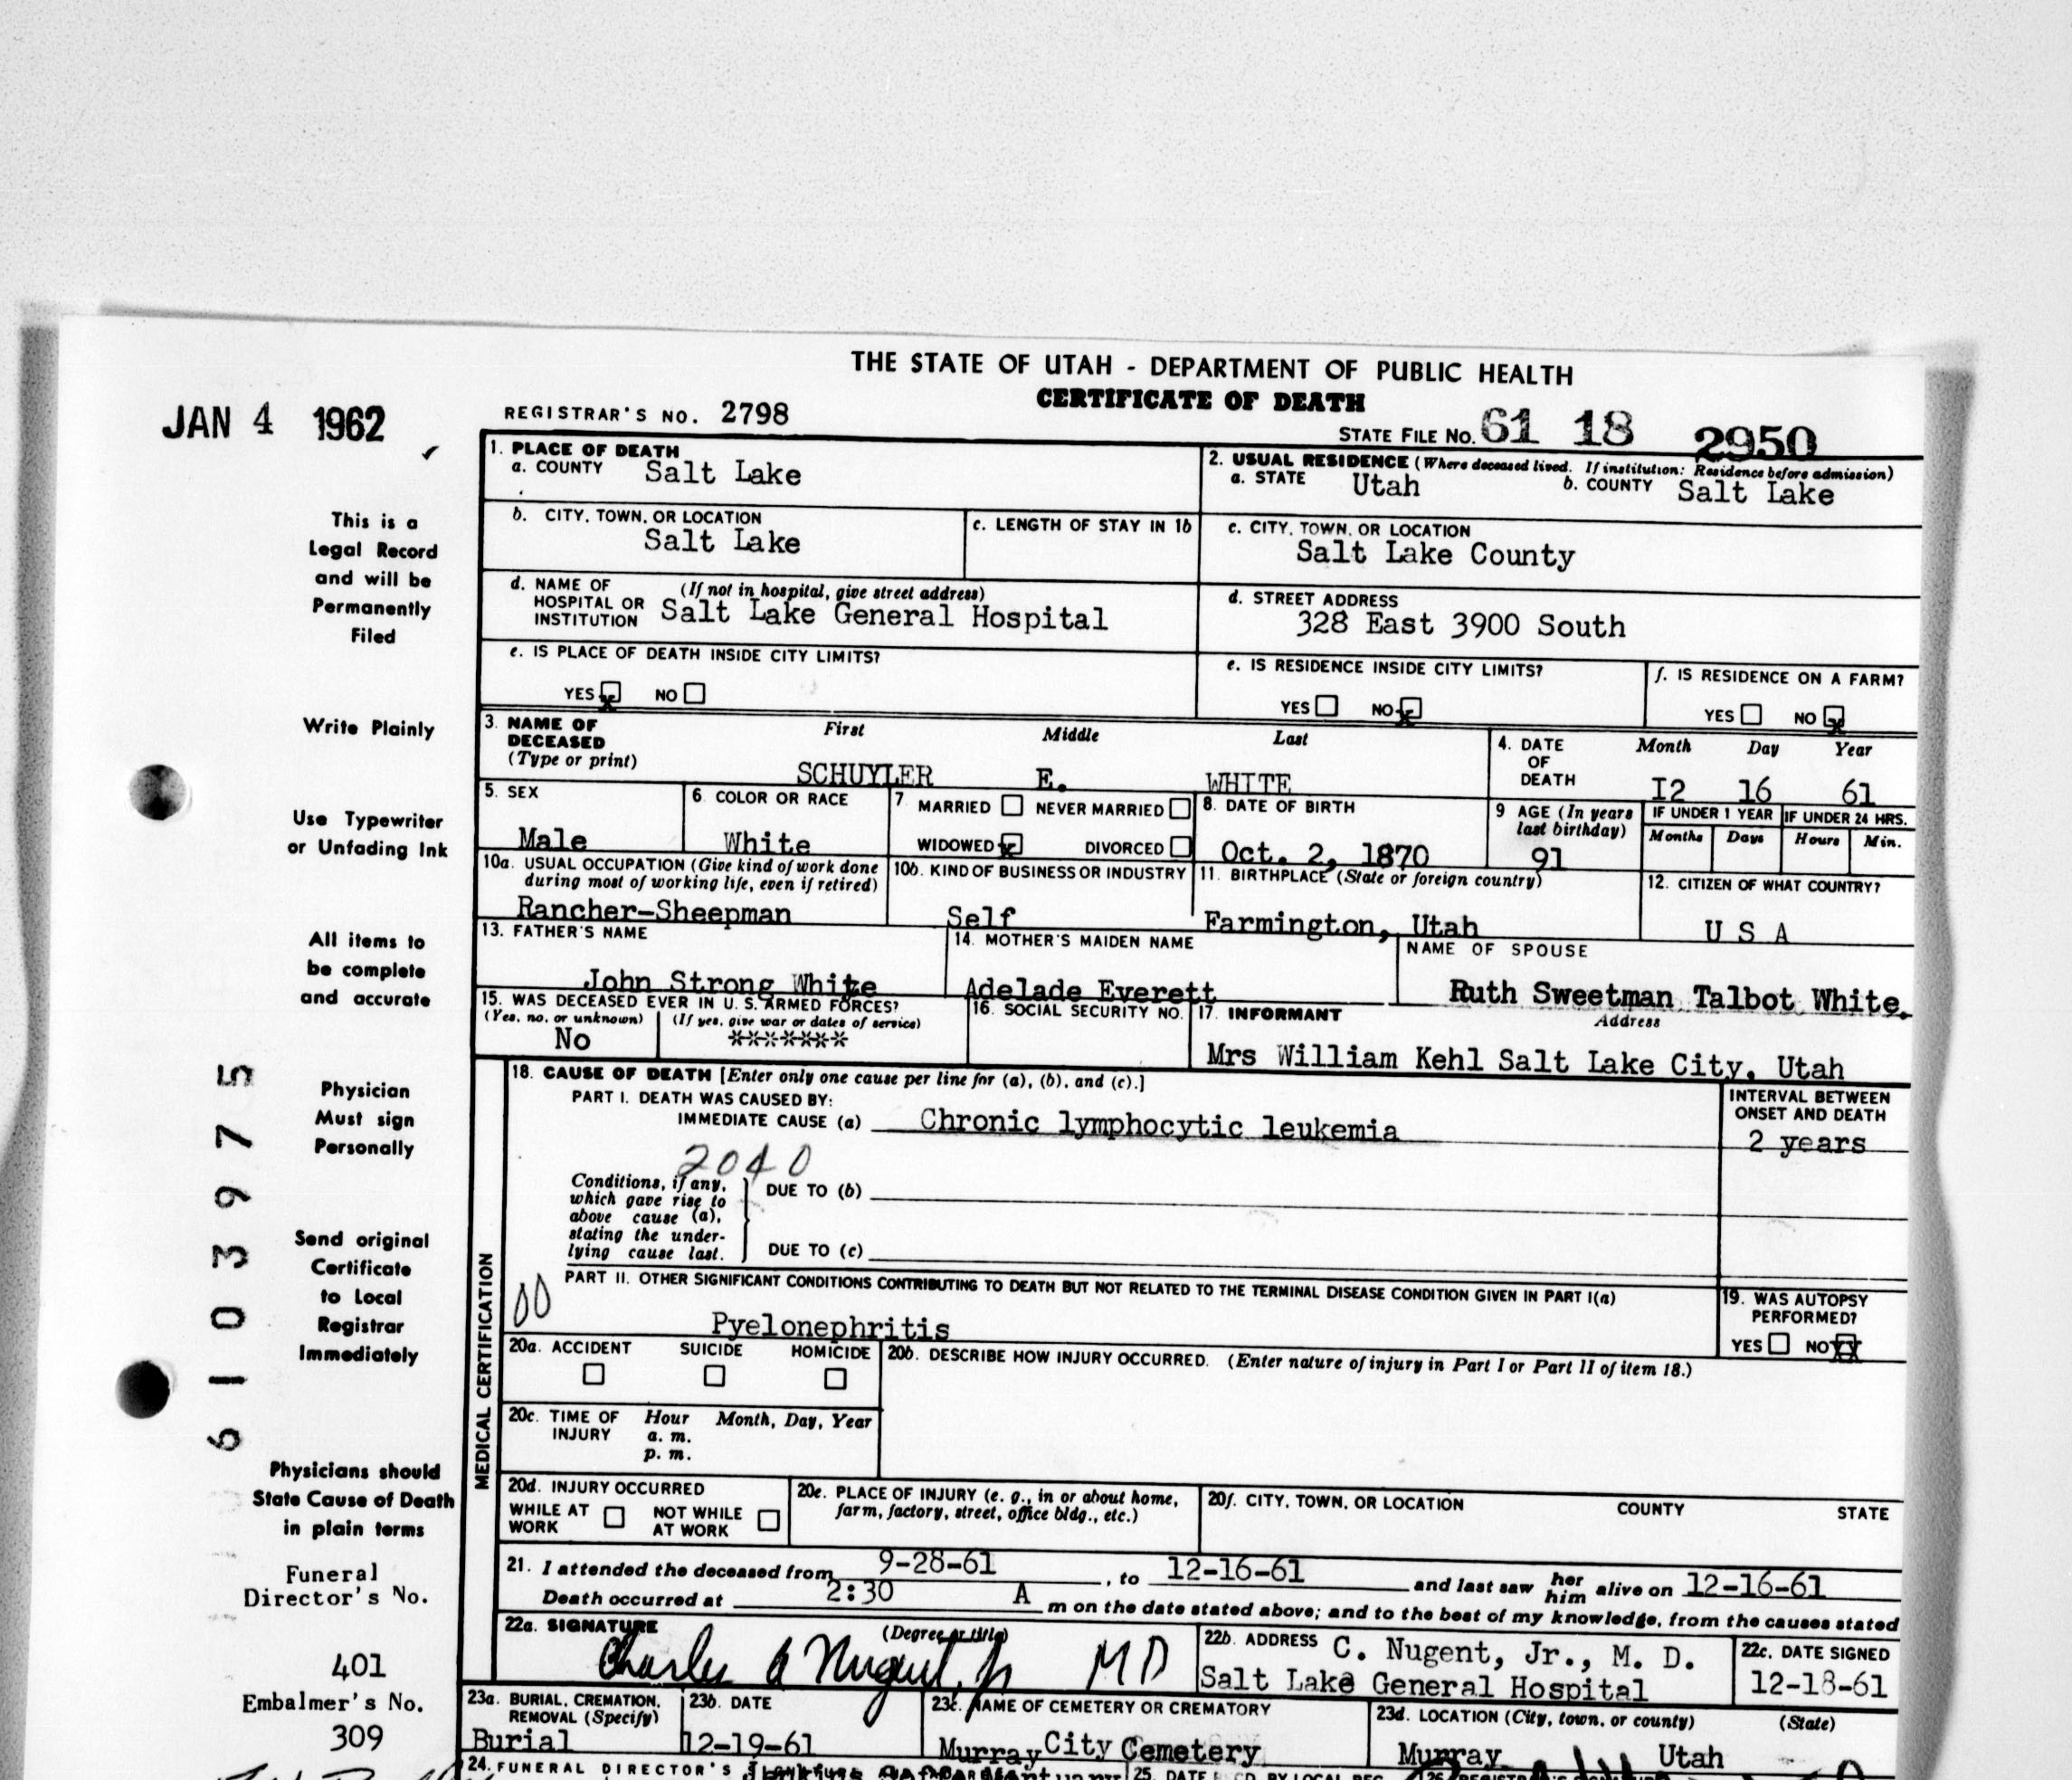 THE STATE OF UTAH - DEPARTMENT OF PUBLIC HEALTH
CERTIFICATE OF DEATH
JAN 4 1962
REGISTRAR'S NO. 2798
STATE FILE NO. 61 18 2950
1. PLACE OF DEATH
a. COUNTY Salt Lake
2. USUAL RESIDENCE (Where deceased lived. If institution: Residence before admission)
a. STATE Utah b. COUNTY Salt Lake
b. CITY, TOWN, OR LOCATION
Salt Lake
c. LENGTH OF STAY IN 1b
c. CITY, TOWN, OR LOCATION
Salt Lake County
d. NAME OF HOSPITAL OR INSTITUTION (If not in hospital, give street address)
Salt Lake General Hospital
d. STREET ADDRESS
328 East 3900 South
e. IS PLACE OF DEATH INSIDE CITY LIMITS?
YES x NO
e. IS RESIDENCE INSIDE CITY LIMITS?
YES NO x
f. IS RESIDENCE ON A FARM?
YES NO x
3. NAME OF DECEASED (Type or print)
First Middle Last
SCHUYLER E. WHITE
4. DATE OF DEATH
Month Day Year
I2 16 61
5. SEX
Male
6. COLOR OR RACE
White
7. MARRIED NEVER MARRIED
WIDOWED x DIVORCED
8. DATE OF BIRTH
Oct. 2, 1870
9 AGE (In years last birthday)
91
IF UNDER 1 YEAR
Months Days
IF UNDER 24 HRS.
Hours Min.
10a. USUAL OCCUPATION (Give kind of work done during most of working life, even if retired)
Rancher-Sheepman
10b. KIND OF BUSINESS OR INDUSTRY
Self
11. BIRTHPLACE (State or foreign country)
Farmington, Utah
12. CITIZEN OF WHAT COUNTRY?
U S A
13. FATHER'S NAME
John Strong White
14. MOTHER'S MAIDEN NAME
Adelade Everett
NAME OF SPOUSE
Ruth Sweetman Talbot White.
15. WAS DECEASED EVER IN U. S. ARMED FORCES?
(Yes, no, or unknown) (If yes, give war or dates of service)
No *******
16. SOCIAL SECURITY NO.
17. INFORMANT Address
Mrs William Kehl Salt Lake City, Utah
18. CAUSE OF DEATH [Enter only one cause per line for (a), (b), and (c).]
PART I. DEATH WAS CAUSED BY:
IMMEDIATE CAUSE (a) Chronic lymphocytic leukemia
INTERVAL BETWEEN ONSET AND DEATH
2 years
2040
Conditions, if any, which gave rise to above cause (a), stating the underlying cause last.
DUE TO (b)
DUE TO (c)
PART II. OTHER SIGNIFICANT CONDITIONS CONTRIBUTING TO DEATH BUT NOT RELATED TO THE TERMINAL DISEASE CONDITION GIVEN IN PART I(a)
00
Pyelonephritis
19. WAS AUTOPSY PERFORMED?
YES NO XX
20a. ACCIDENT SUICIDE HOMICIDE
20b. DESCRIBE HOW INJURY OCCURRED. (Enter nature of injury in Part I or Part II of item 18.)
20c. TIME OF INJURY Hour Month, Day, Year
a. m.
p. m.
20d. INJURY OCCURRED
WHILE AT WORK NOT WHILE AT WORK
20e. PLACE OF INJURY (e. g., in or about home, farm, factory, street, office bldg., etc.)
20f. CITY, TOWN, OR LOCATION COUNTY STATE
21. I attended the deceased from 9-28-61, to 12-16-61 and last saw her him alive on 12-16-61
Death occurred at 2:30 A m on the date stated above; and to the best of my knowledge, from the causes stated
22a. SIGNATURE (Degree or title)
Charles A Nugent, Jr MD
22b. ADDRESS C. Nugent, Jr., M. D.
Salt Lake General Hospital
22c. DATE SIGNED
12-18-61
23a. BURIAL, CREMATION, REMOVAL (Specify)
Burial
23b. DATE
12-19-61
23c. NAME OF CEMETERY OR CREMATORY
Murray City Cemetery
23d. LOCATION (City, town, or county) (State)
Murray Utah
24. FUNERAL DIRECTOR'S
25. DATE
MEDICAL CERTIFICATION
This is a
Legal Record
and will be
Permanently
Filed
Write Plainly
Use Typewriter
or Unfading Ink
All items to
be complete
and accurate
Physician
Must sign
Personally
Send original
Certificate
to Local
Registrar
Immediately
Physicians should
State Cause of Death
in plain terms
Funeral
Director's No.
401
Embalmer's No.
309
6103975